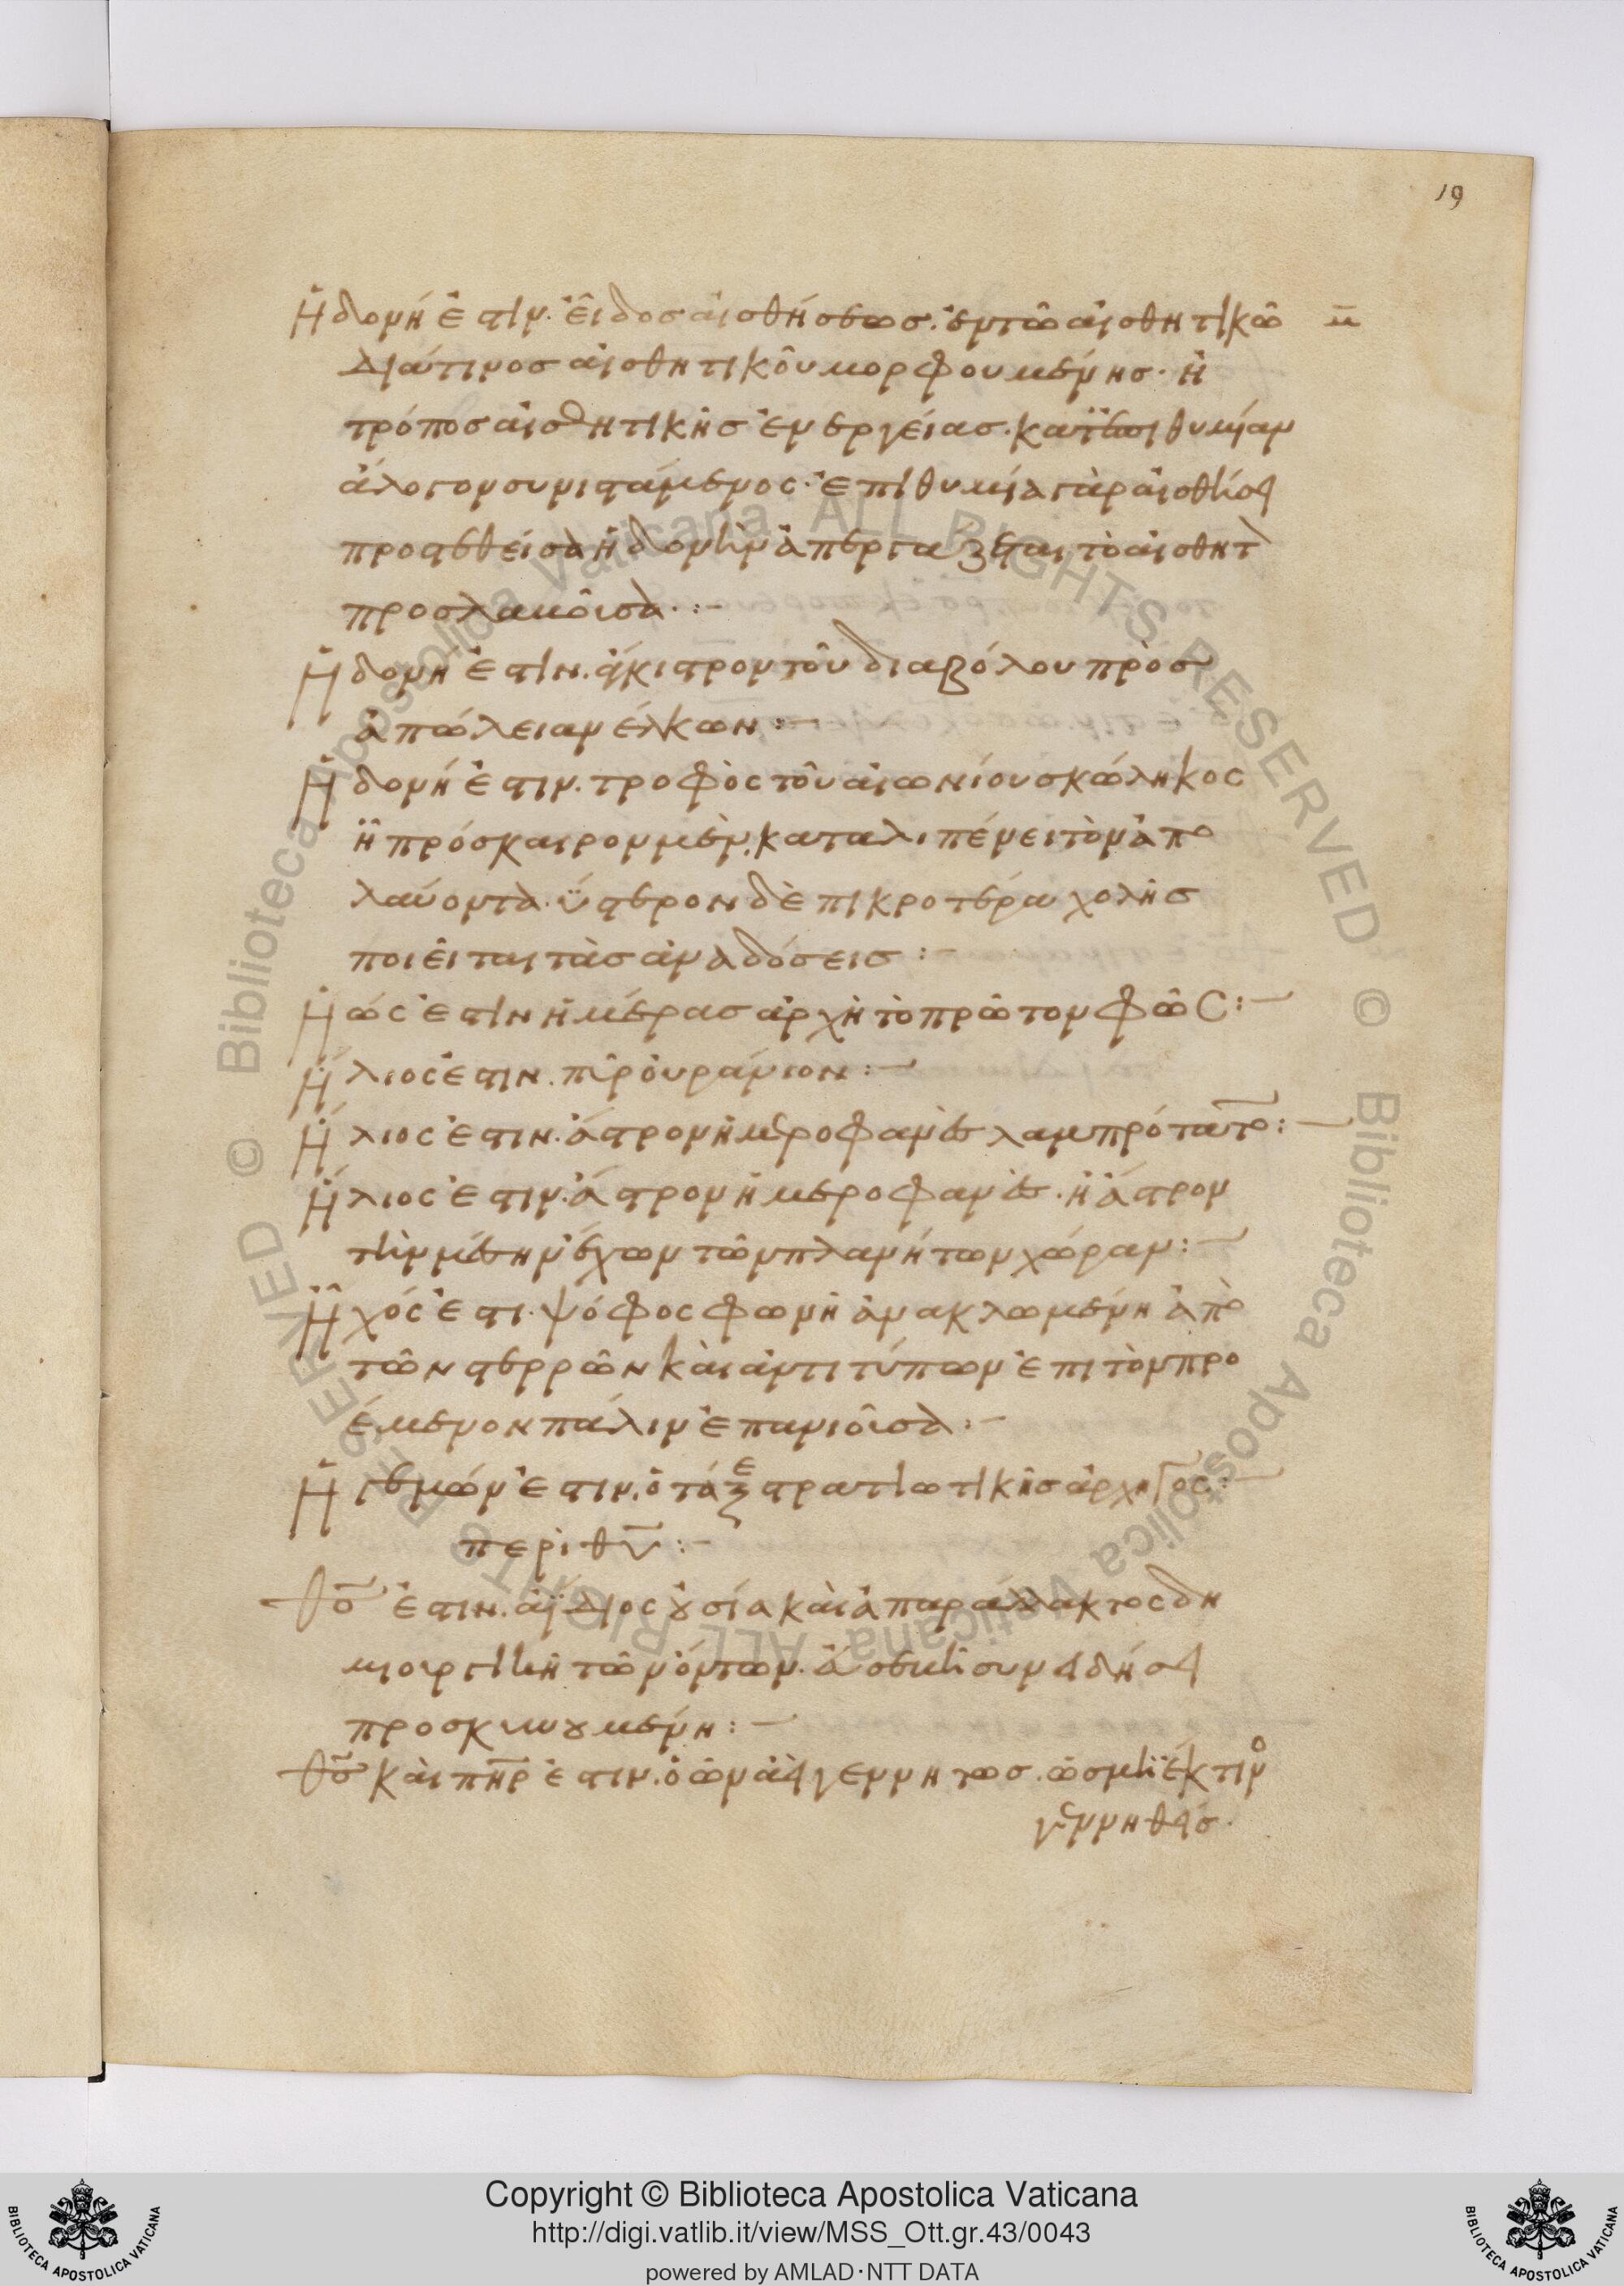 19
Ἡδονή ἐστιν. εἶδος αἰσθήσεως. ἐν τῶ αἰσθητικῶ μ̅
διά τινος αἰσθητικοῦ μορφουμένης. ἢ
τρόπος αἰσθητικῆς ἐνεργείας. κατ' ἐπιθυμίαν
ἄλογον συνιστάμενος. ἐπιθυμία γὰρ αἰσθήσει
προστεθεῖσα ἡδονὴν ἀπεργάζεται τὸ αἰσθητ
προσλαβοῦσα :-
Ἡδονή ἐστιν. ἄγκιστρον τοῦ διαβόλου πρὸς
ἀπώλειαν ἕλκων :-
Ἡδονή ἐστιν. τροφὸς τοῦ αἰωνίου σκώληκος
ἣ πρόσκαιρον μὲν καταλιπαίνει τὸν ἀπο
λαύοντα. ὕστερον δὲ πικροτέρα χολῆς
ποιεῖται τὰς ἀναδόσεις :-
Ἠώς ἐστιν ἡμέρας ἀρχὴ τὸ πρῶτον φῶς :-
Ἥλιός ἐστιν. πῦρ οὐράνιον :-
Ἥλιός ἐστιν. ἄστρον ἡμεροφανὲς λαμπρότατον :-
Ἥλιός ἐστιν. ἄστρον ἡμεροφανὲς. ἢ ἄστρον
τὴν μέσην ἔχων τῶν πλανήτων χώραν :-
Ἦχός ἐστι. ψόφος φωνὴ ἀνακλωμένη ἀπὸ
τῶν στερρῶν καὶ ἀντιτύπων ἐπὶ τὸν προ
έμενον πάλιν ἐπανιοῦσα :-
Ἡγεμών ἐστιν. ὁ τάξε στρατιωτικῆς ἀρχηγός :-
περὶ θυ̅ :-
θσ̅ ἐστιν. ἀΐδιος οὐσία καὶ ἀπαράλλακτος δη
μιουργικὴ τῶν ὄντων. εὐσεβῆ συνειδήσει
προσκυνουμένη :-
θσ̅ καὶ πηρ̅ ἐστιν. ὁ ὢν ἀεὶ γεννητως. ὡς μὴ ἔκ τινο
γεννηθείς.
Copyright © Biblioteca Apostolica Vaticana
http://digi.vatlib.it/view/MSS_Ott.gr.43/0043
powered by AMLAD·NTT DATA